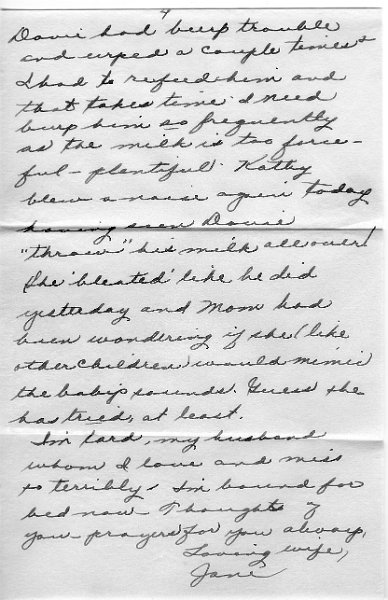 4
Davie had burp trouble
and urped a couple times &
I had to refeed him and
that takes time. I need
burp him so frequently
as the milk is too force-
ful - plentiful. Kathy
blew a noise again today
having seen Davie
"throw" his milk all over!
She 'bleated' like he did
yesterday and Mom had
been wondering if she (like
other children) would mimic
the baby's sounds. Guess she
has tried, at least.
I'm tard, my husband
whom I love and miss
so terribly. I'm bound for
bed now - Thoughts of
you - prayers for you always,
Loving wife,
Jane